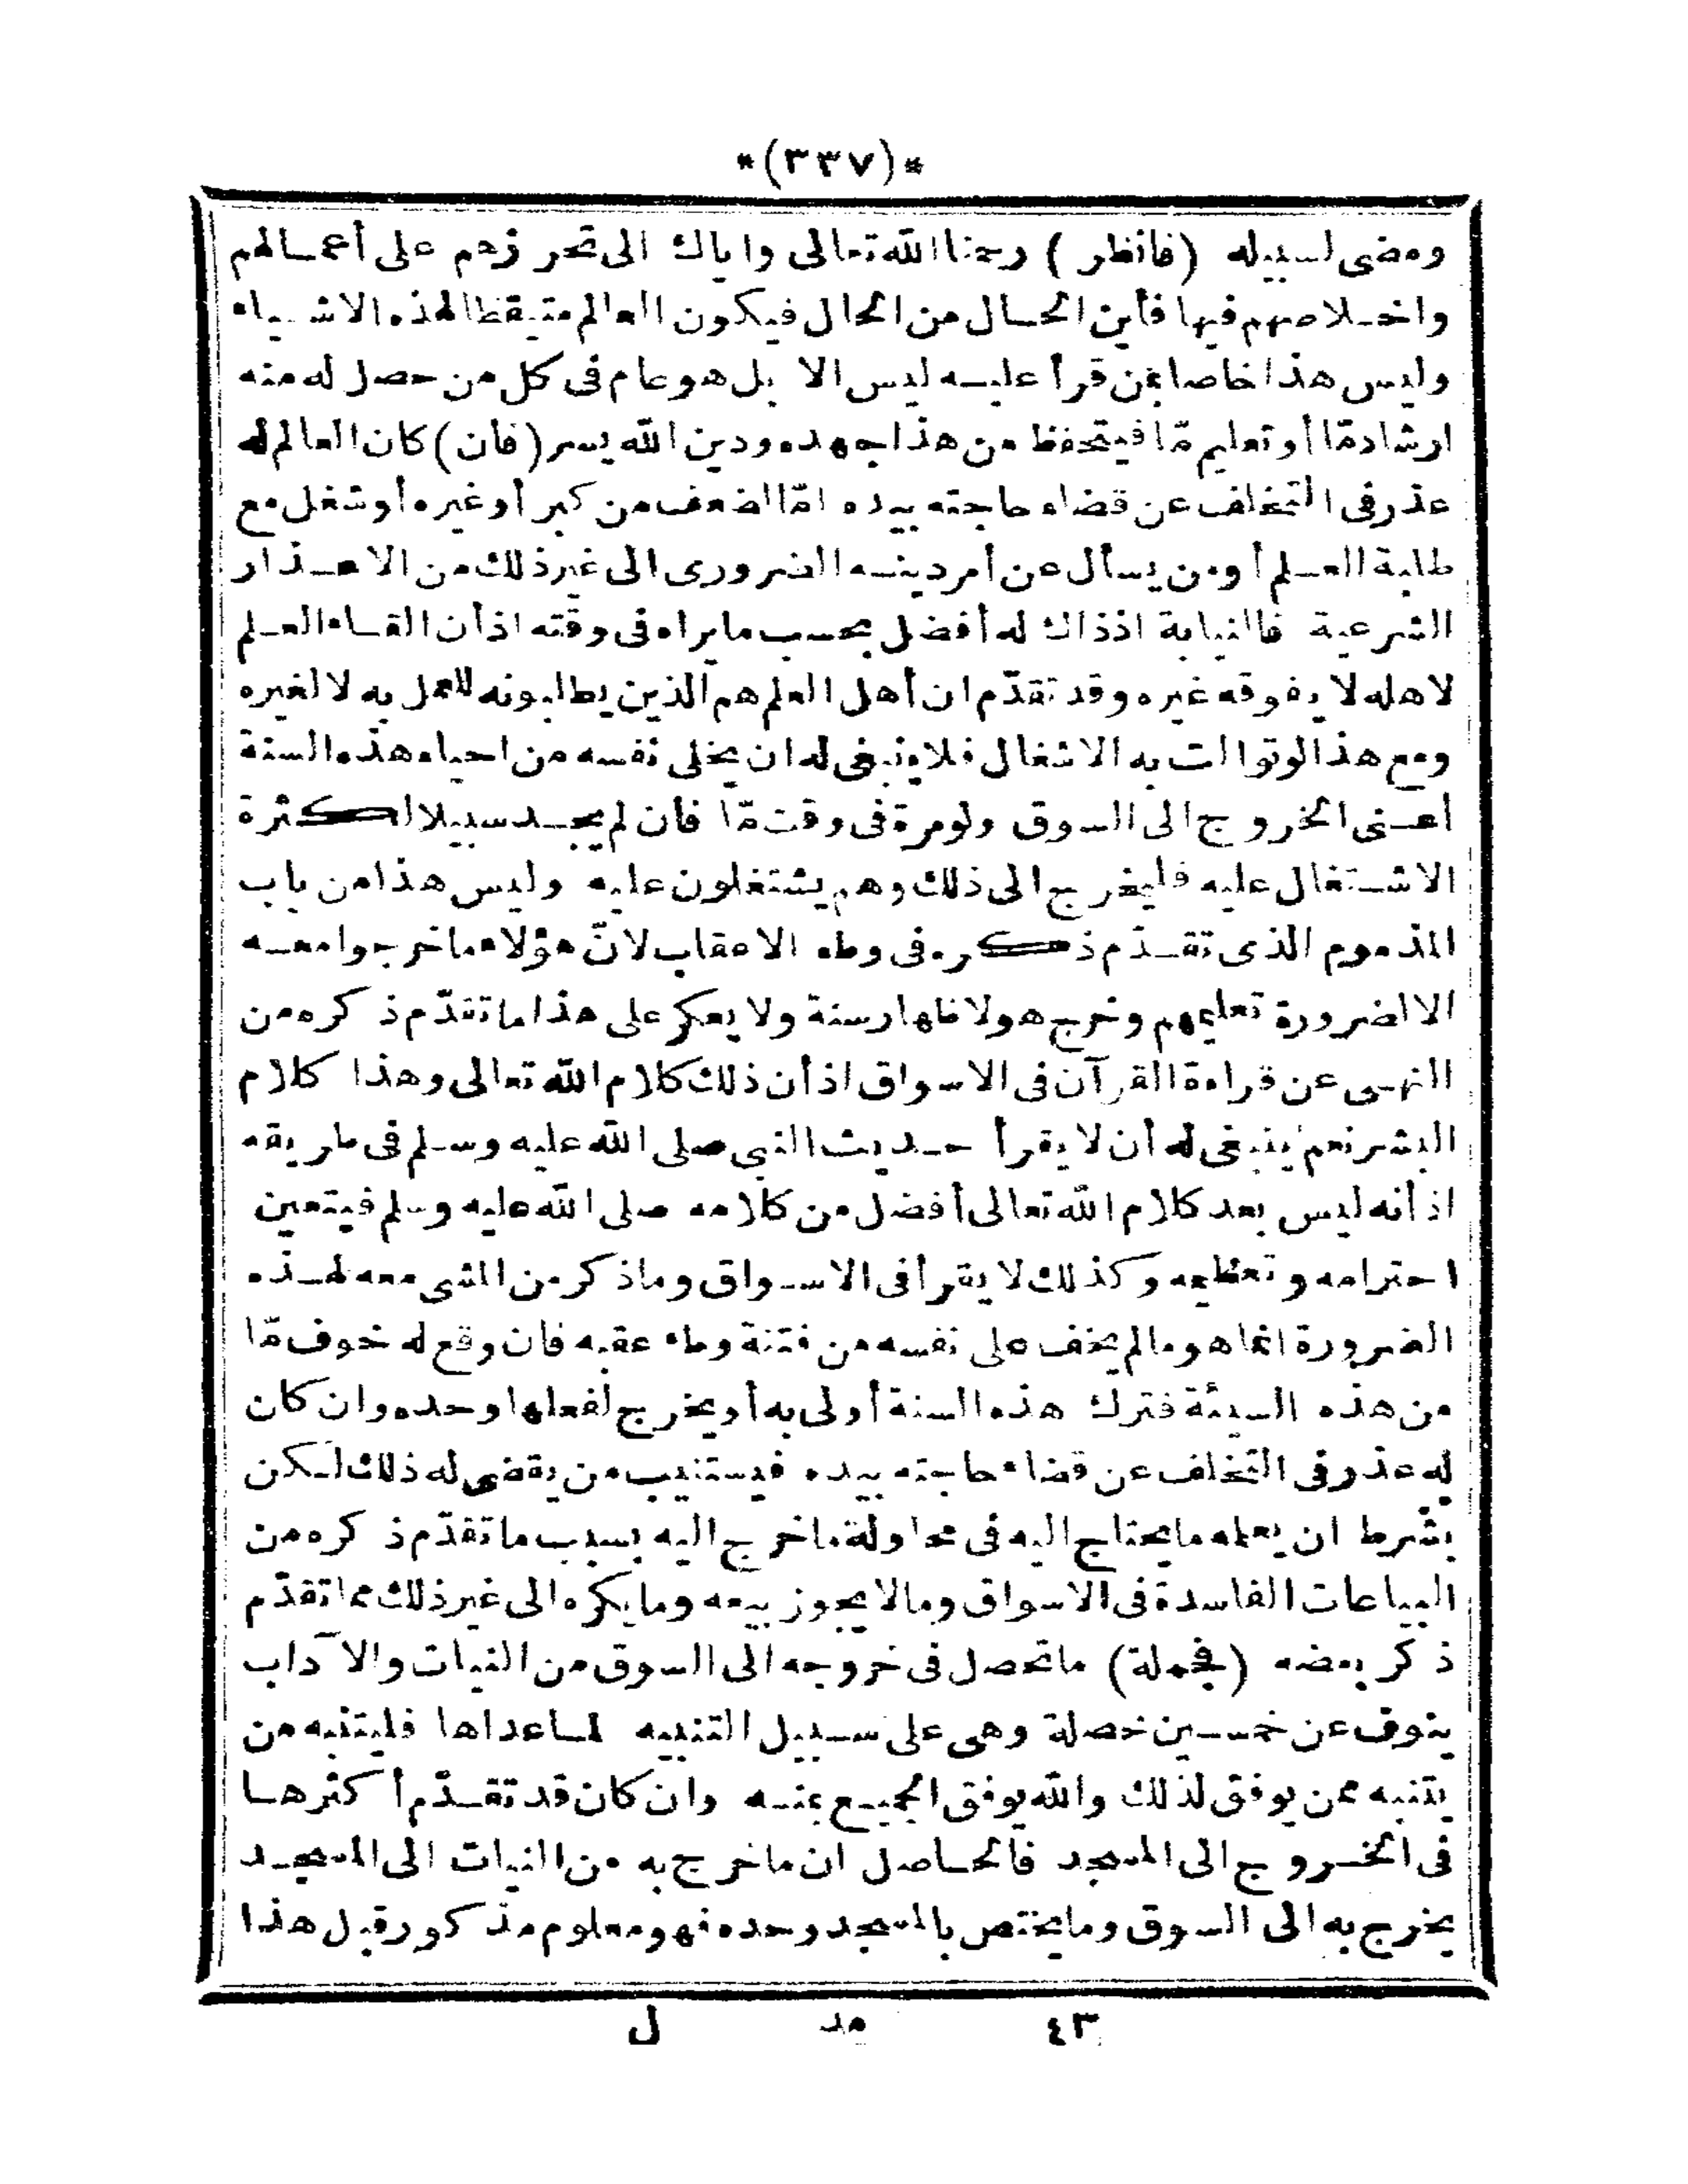 *(٣٣٧)*
ومضى لسبيله (فانظر) رحمنا الله تعالى واياك الى تحرزهم على أعمالهم
واخلاصهم فيها فأين الحال من الحال فيكون العالم متيقظا لهذه الاشياء
وليس هذا خاصا بمن قرأ عليه ليس الا بل هو عام فى كل من حصل له منه
ارشاد مّا أو تعليم مّا فيتحفظ من هذا جهده ودين الله يسر (فان) كان العالم له
عذر فى التخلف عن قضاء حاجته بيده امّا لضعف من كبر أو غيره أو شغل مع
طلبة العلم أو من يسأل عن أمر دينه الضرورى الى غير ذلك من الاعذار
الشرعية فالنيابة اذ ذاك له أفضل بحسب ما يراه فى وقته اذ أن القاء العلم
لاهله لا يفوقه غيره وقد تقدّم ان أهل العلم هم الذين يطلبونه للعمل به لا لغيره
ومع هذا لو توالت به الاشغال فلا ينبغى له ان يخلى نفسه من احياء هذه السنة
أعنى الخروج الى السوق ولو مرة فى وقت مّا فان لم يجد سبيلا لكثرة
الاشتغال عليه فليخرج الى ذلك وهم يشتغلون عليه وليس هذا من باب
المذموم الذى تقدّم ذكره فى وطء الاعقاب لانّ هؤلاء ما خرجوا معه
الا لضرورة تعليمهم وخرج هو لاظهار سنة ولا يعكر على هذا ما تقدّم ذكره من
النهى عن قراءة القرآن فى الاسواق اذ أن ذلك كلام الله تعالى وهذا كلام
البشر نعم ينبغى له أن لا يقرأ حديث النبي صلى الله عليه وسلم فى طريقه
اذ أنه ليس بعد كلام الله تعالى أفضل من كلامه صلى الله عليه وسلم فيتعين
احترامه وتعظيمه وكذلك لا يقرأ فى الاسواق وما ذكر من المشى معه لهذه
الضرورة انما هو ما لم يخف على نفسه من فتنة وطء عقبه فان وقع له خوف مّا
من هذه السيئة فترك هذه السنة أولى به أو يخرج لفعلها وحده وان كان
له عذر فى التخلف عن قضاء حاجته بيده فيستنيب من يقضى له ذلك لكن
بشرط ان يعلمه ما يحتاج اليه فى محاولة ما خرج اليه بسبب ما تقدّم ذكره من
البياعات الفاسدة فى الاسواق وما لا يجوز بيعه وما يكره الى غير ذلك مما تقدّم
ذكر بعضه (فجملة) ما تحصل فى خروجه الى السوق من النيات والآداب
ينوف عن خمسين خصلة وهى على سبيل التنبيه لما عداها فليتنبه من
يتنبه ممن يوفق لذلك والله يوفق الجميع بمنه وان كان قد تقدّم أكثرها
فى الخروج الى المسجد فالحاصل ان ما خرج به من النيات الى المسجد
يخرج به الى السوق وما يختص بالمسجد وحده فهو معلوم مذكور قبل هذا
٤٣ مد ل